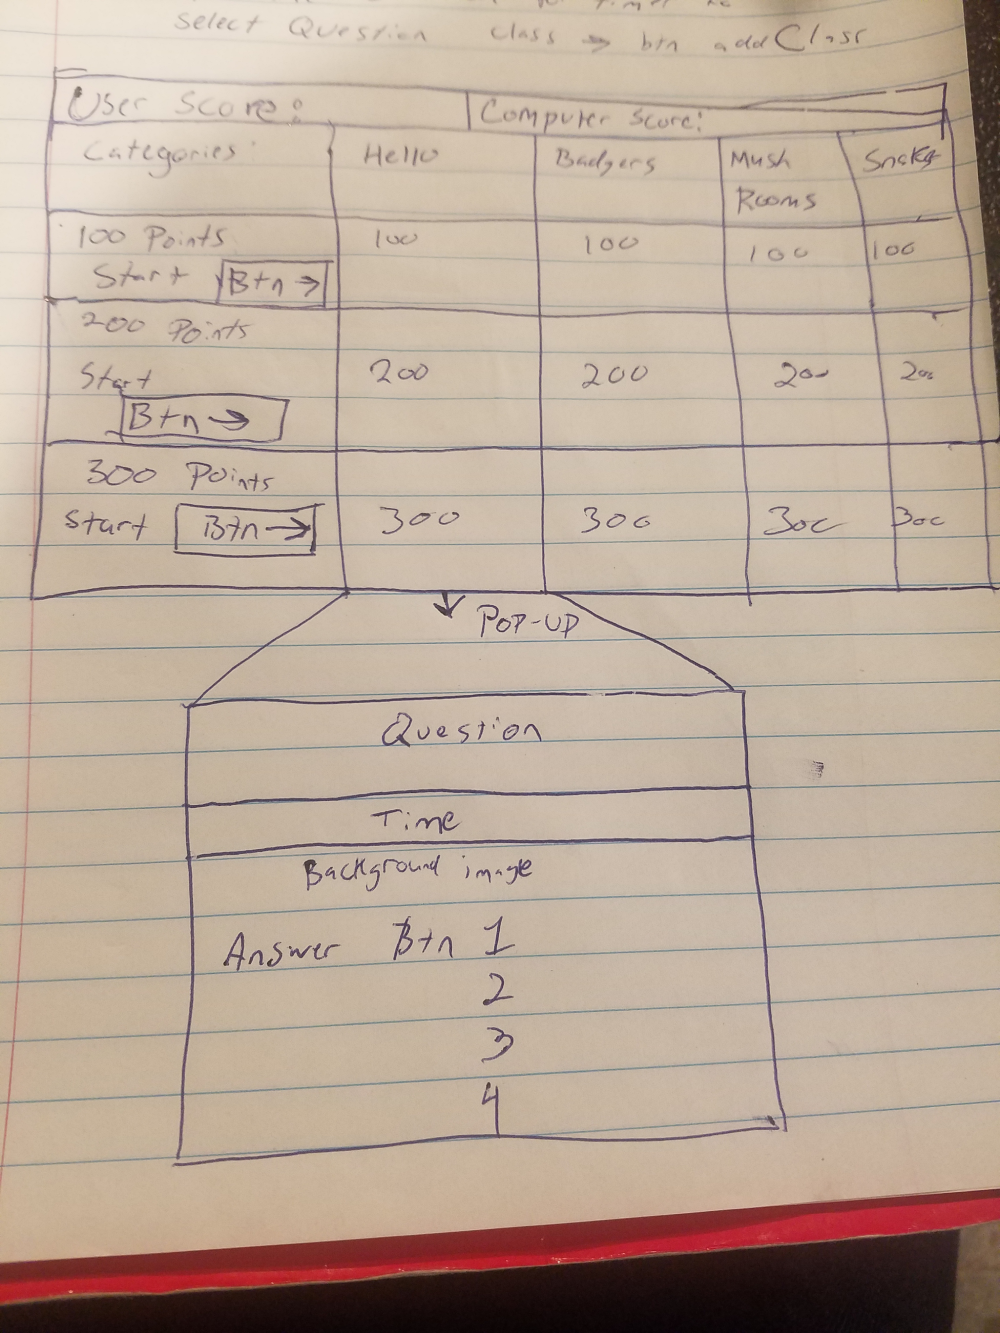 Select Question class → btn addClass
User Score: Computer Score:
Categories: Hello Badgers Mush Snakes
Rooms
100 Points 100 100 100 100
Start Btn →
200 Points
Start 200 200 200 200
Btn →
300 Points
Start Btn → 300 300 300 300
↓ POP-UP
Question
Time
Background image
Answer Btn 1
2
3
4